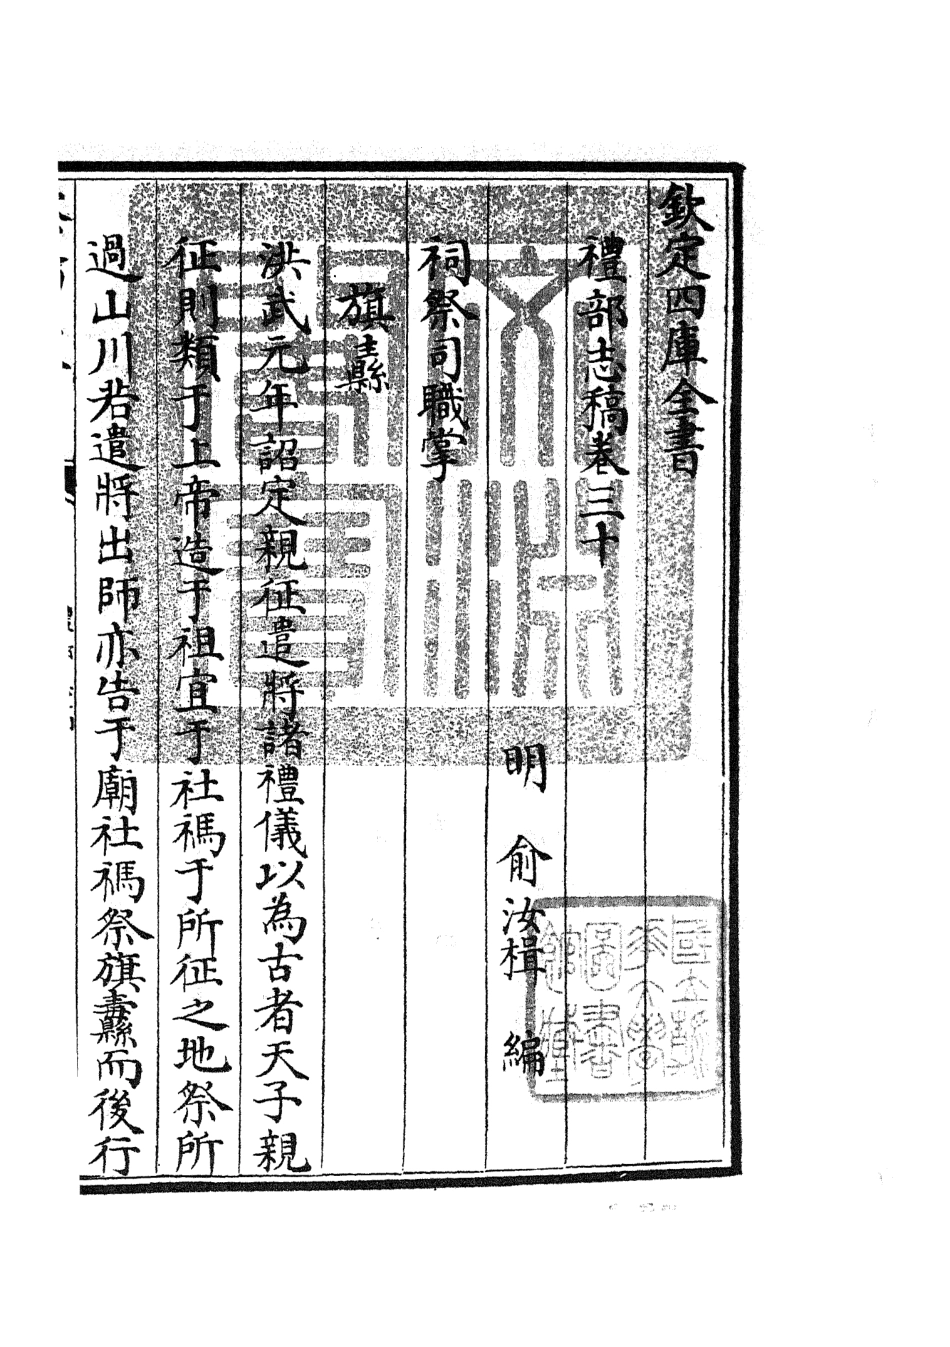 欽定四庫全書
禮部志稿卷三十
明 俞汝楫 編
祠祭司職掌
旗纛
洪武元年詔定親征遣將諸禮儀以為古者天子親
征則類于上帝造于祖宜于社禡于所征之地祭所
過山川若遣將出師亦告于廟社禡祭旗纛而後行